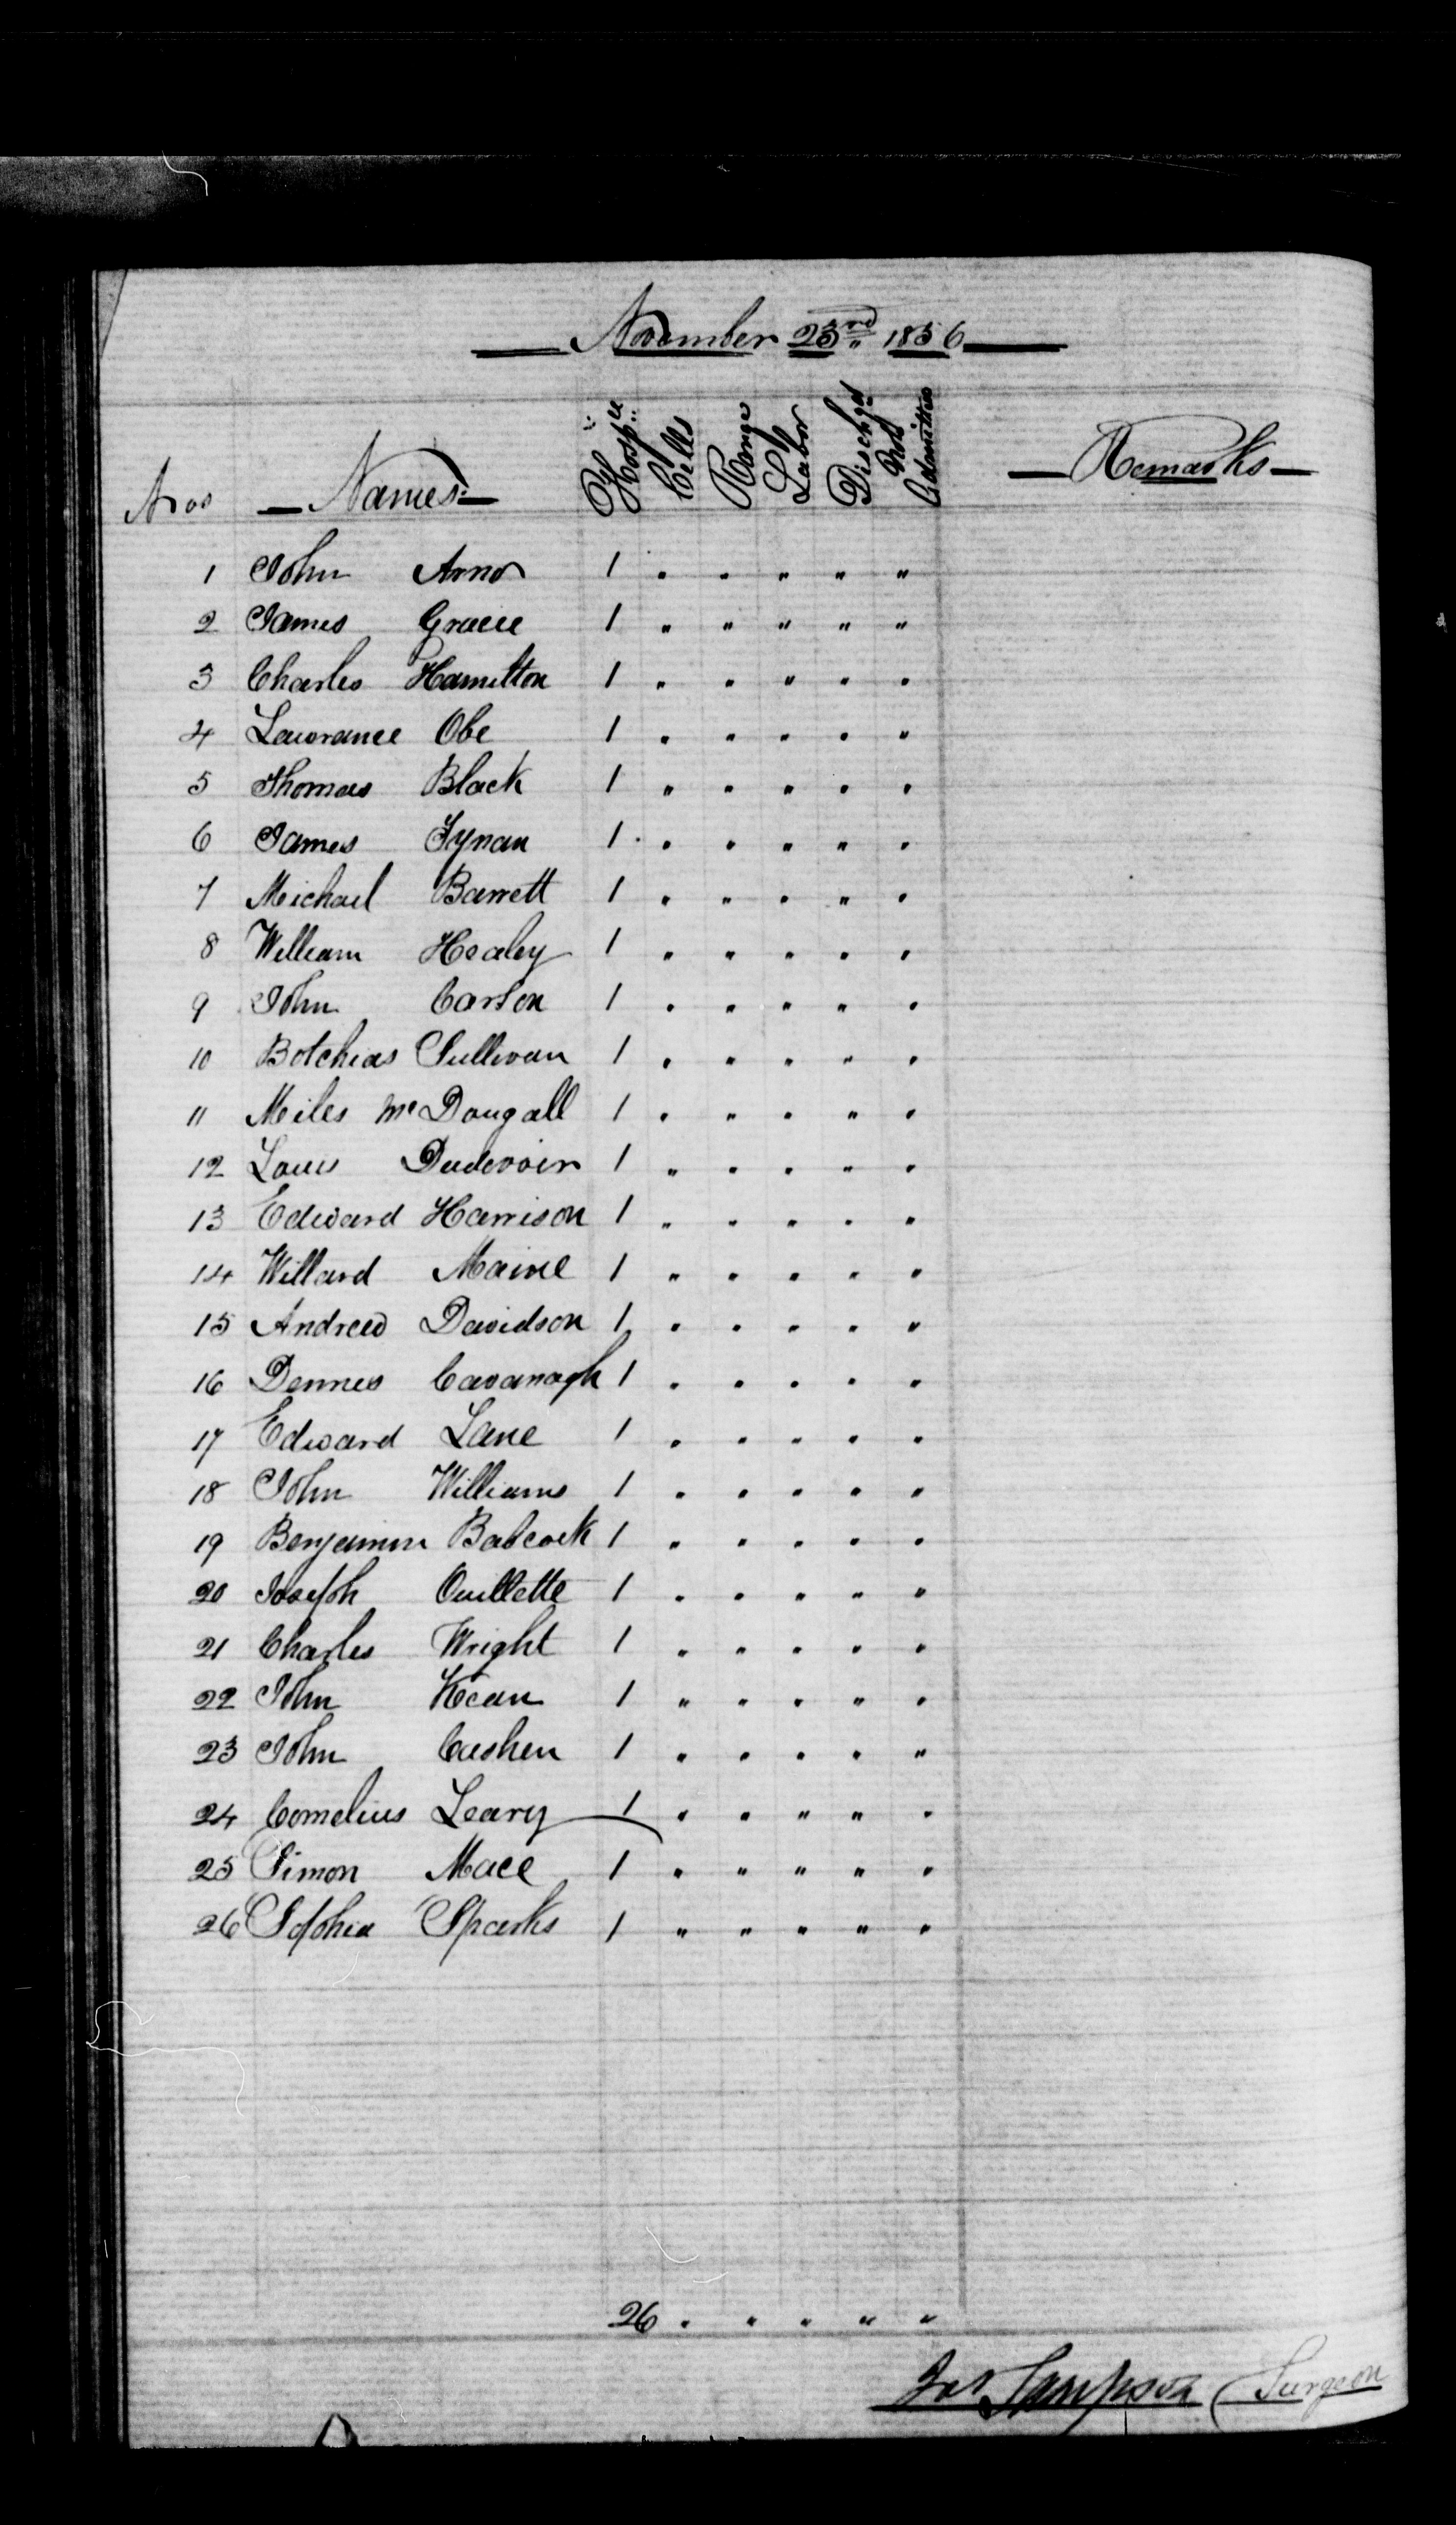 November 23rd 1856
Nos Names Hospl Cells Range Labor Dischgd Not Admitted Remarks
1 John Arno 1 " " " " "
2 James Gracie 1 " " " " "
3 Charles Hamilton 1 " " " " "
4 Lawrance Obe 1 " " " " "
5 Thomas Black 1 " " " " "
6 James Tynan 1 " " " " "
7 Michael Barrett 1 " " " " "
8 William Healey 1 " " " " "
9 John Carson 1 " " " " "
10 Botchias Sullivan 1 " " " " "
11 Miles McDougall 1 " " " " "
12 Louis Dudevoir 1 " " " " "
13 Edward Harrison 1 " " " " "
14 Willard Maine 1 " " " " "
15 Andrew Davidson 1 " " " " "
16 Dennis Cavanagh 1 " " " " "
17 Edward Lane 1 " " " " "
18 John Williams 1 " " " " "
19 Benjamin Babcock 1 " " " " "
20 Joseph Ouillette 1 " " " " "
21 Charles Wright 1 " " " " "
22 John Kean 1 " " " " "
23 John Cashen 1 " " " " "
24 Cornelius Leary 1 " " " " "
25 Simon Mace 1 " " " " "
26 Sophia Sparks 1 " " " " "
26 " " " " "
Jas Sampson Surgeon